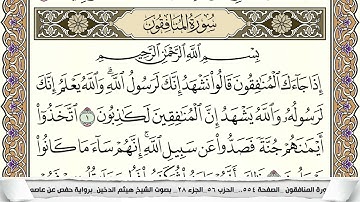 سُورَةُ المُنَافِقُونَ
بِسْمِ اللَّهِ الرَّحْمَٰنِ الرَّحِيمِ
إِذَا جَاءَكَ الْمُنَافِقُونَ قَالُوا نَشْهَدُ إِنَّكَ لَرَسُولُ اللَّهِ ۗ وَاللَّهُ يَعْلَمُ إِنَّكَ
لَرَسُولُهُ وَاللَّهُ يَشْهَدُ إِنَّ الْمُنَافِقِينَ لَكَاذِبُونَ ١ اتَّخَذُوا
أَيْمَانَهُمْ جُنَّةً فَصَدُّوا عَن سَبِيلِ اللَّهِ ۚ إِنَّهُمْ سَاءَ مَا كَانُوا
ورة المنافقون .. الصفحة ٥٥٤ .. الحزب ٥٦ .. الجزء ٢٨ .. بصوت الشيخ هيثم الدخين .. برواية حفص عن عاصم